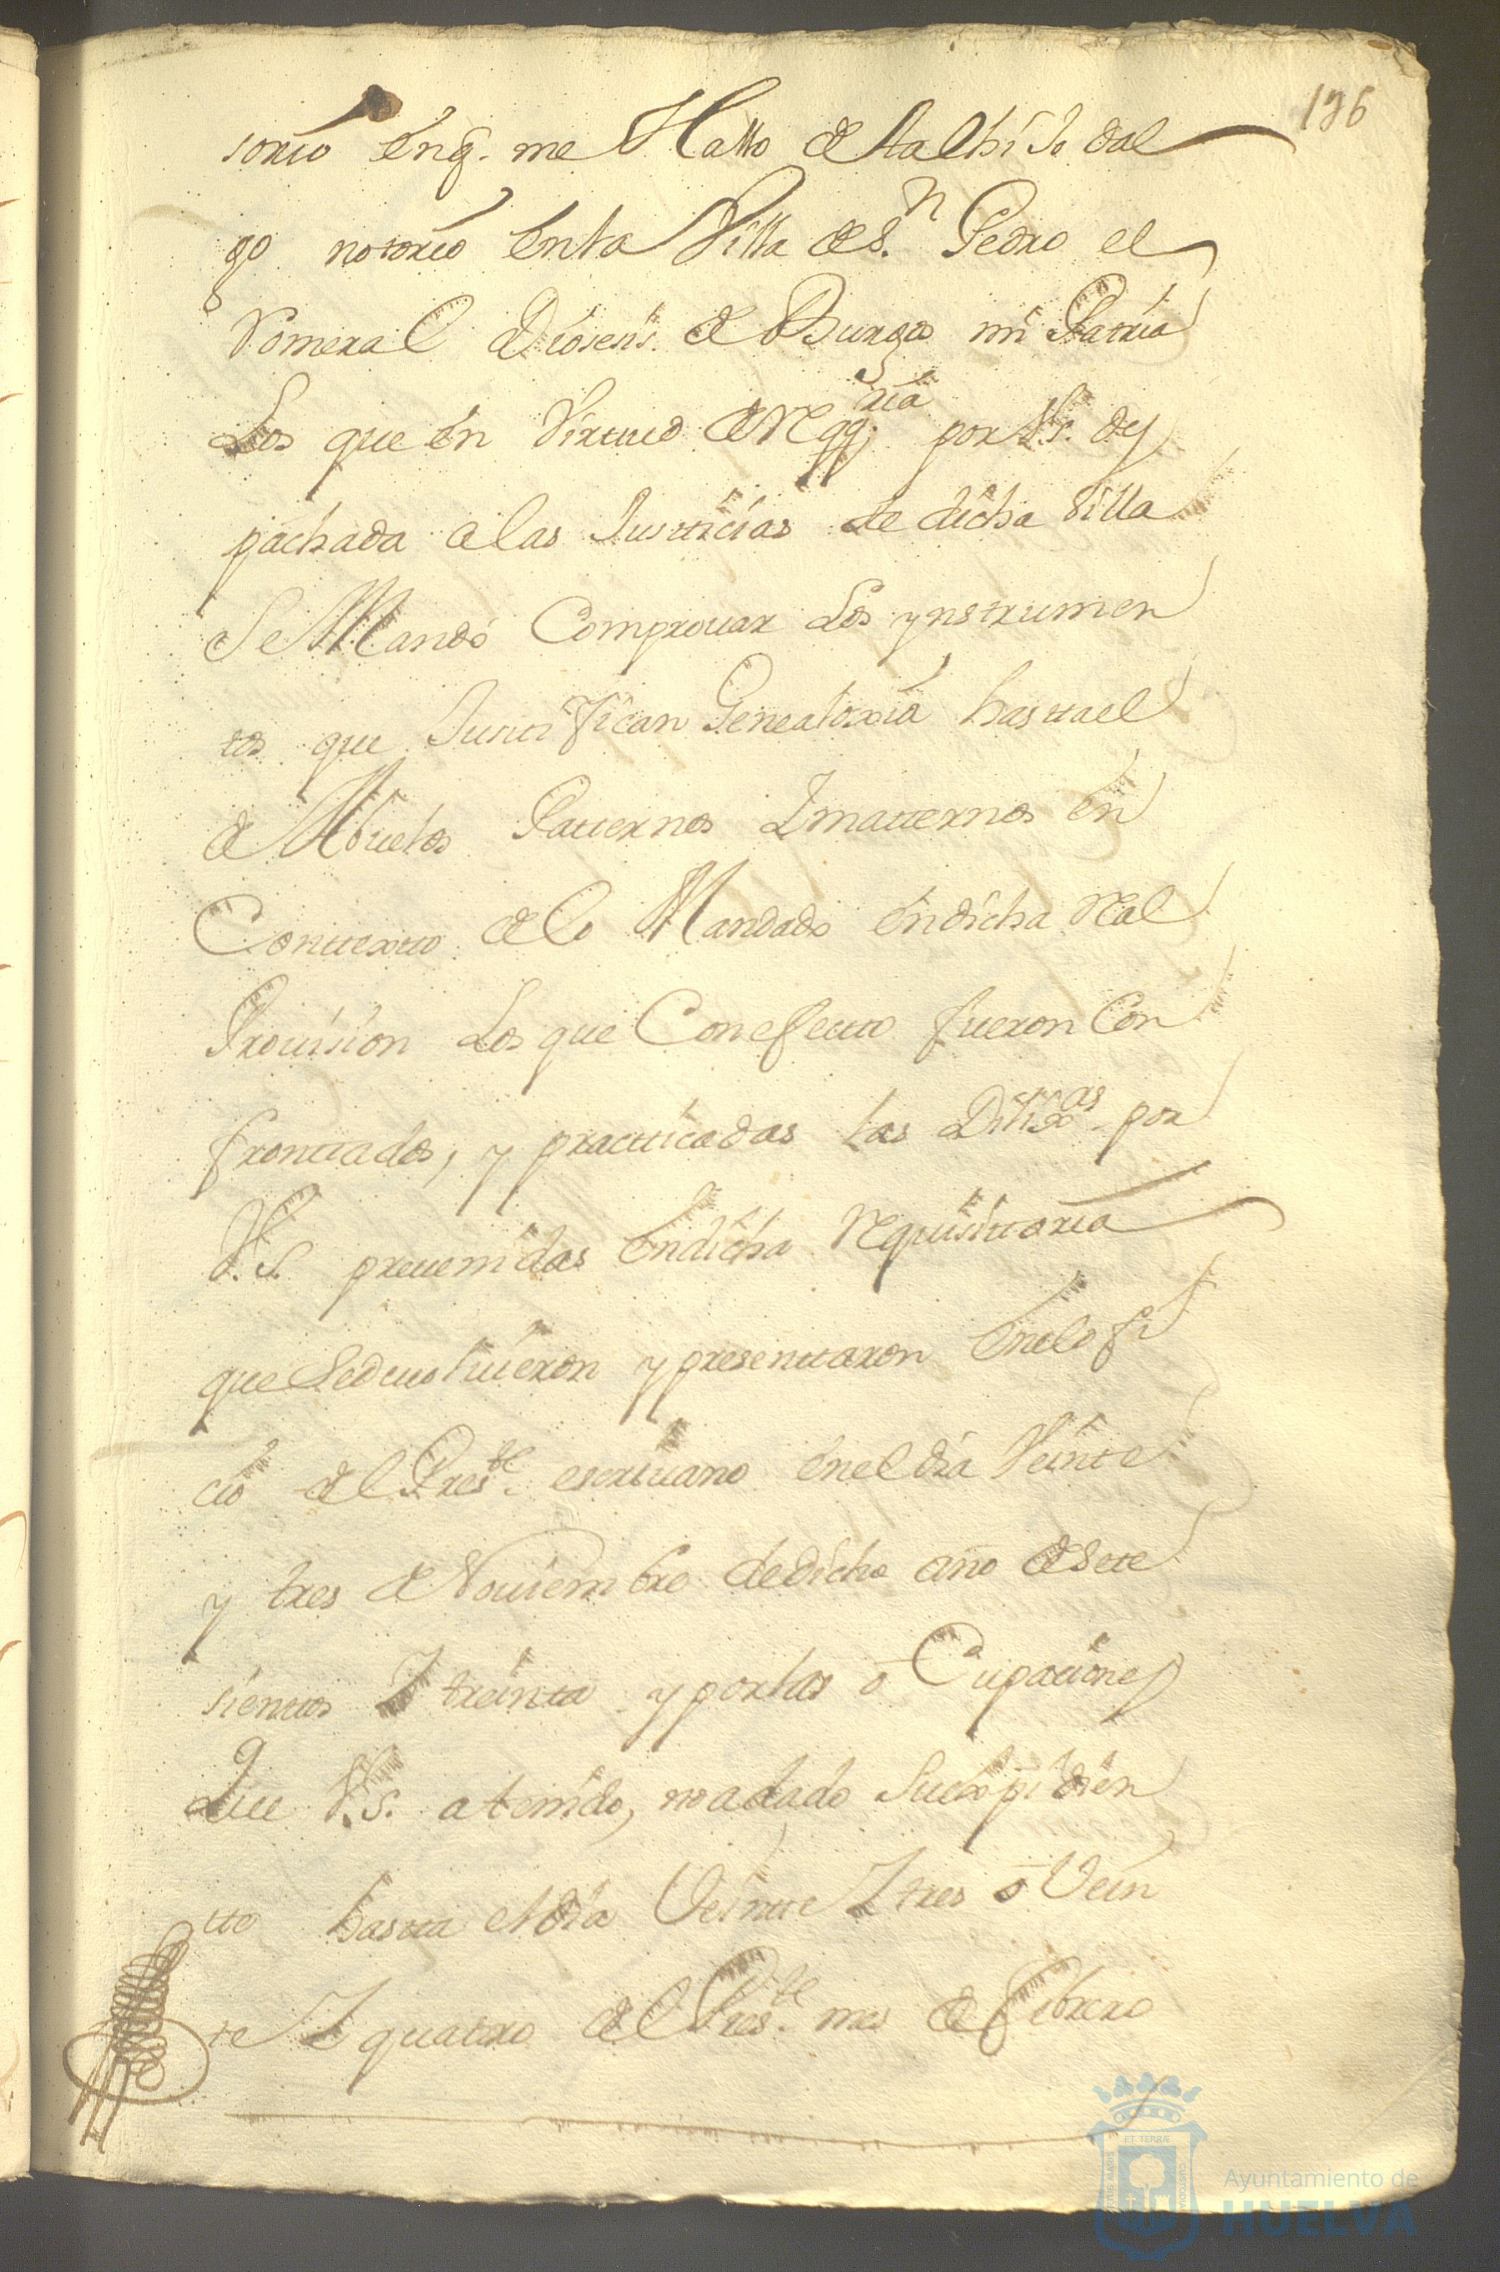 196
sorio enq. me Hallo de tal hijo dal
go notorio en la Villa de S.n Pedro el
Romeral Diosesis. de Burgos mi Patria
Los que en Virtud de Reqq.ria por V.s. des
pachada a las Justicias de dicha Villa
Se Mandó Comprouar Los ynstrumen
tos que Justifican Genealoxia hasta el
de Abuelos Paternos Y maternos en
Contexto de lo Mandado en dicha Real
Prouision Los que Con efecto fueron Con
frontados, y practicadas las Dilix.as por
V.S. preuenidas en dicha Requisitoria
que Se deuoluieron y presentaron en el ofi
cio del Pres.te escriuano en el dia Veinte
y tres de Nouiembre de dicho año de Sete
sientos Y treinta y por las oCupaciones
Que V.s. a tenido, no a dado Su expidien
tte hasta el dia Veinte Y tres o Vein
te Y quatro del Pres.te mes de Febrero
ET TERRÆ
Ayuntamiento de
HUELVA